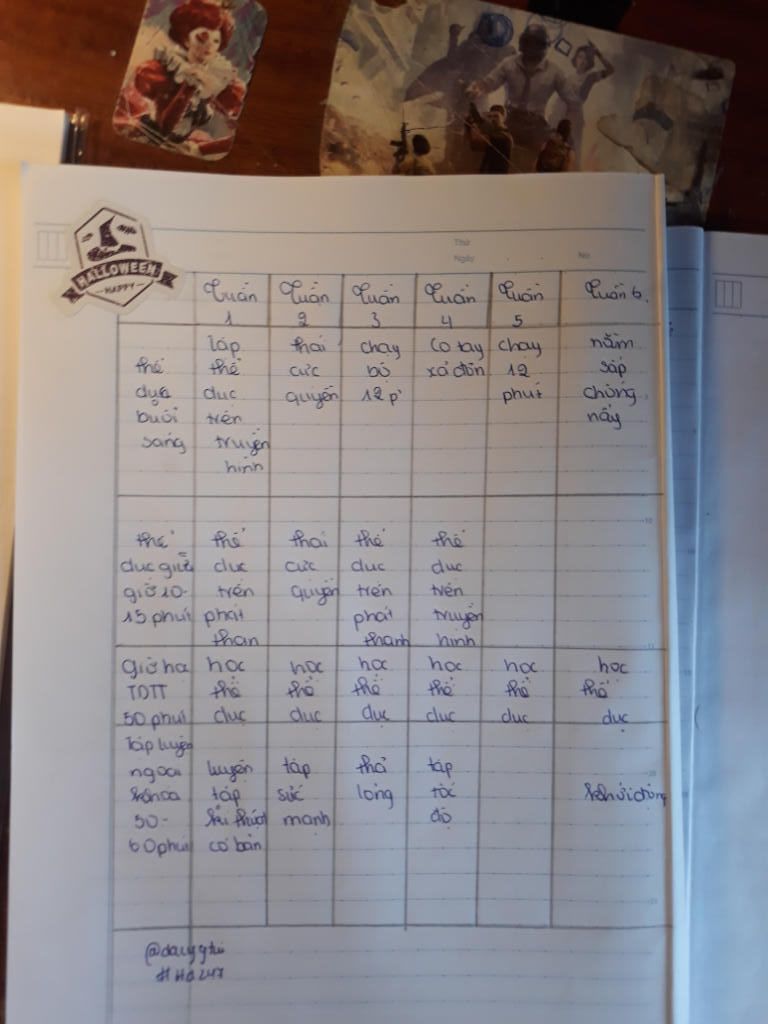 Thứ
Ngày
No
HALLOWEEN
HAPPY
Tuần Tuần Tuần Tuần Tuần Tuần 6.
1 2 3 4 5
tập thái chạy co tay chạy nằm
thể thể cực bộ xà đơn 12 sấp
dục dục quyền 12p' phút chống
buổi trên nẩy
sáng truyền
hình
thể thể thái thể thể
dục giữa dục cực dục dục
giờ 10- trên quyền trên trên
15 phút phát phát truyền
than thanh hình
giờ học học học học học học
TDTT thể thể thể thể thể thể
50 phút dục dục dục dục dục dục
tập luyện
ngoại luyện tập thả tập
khóa tập sức lỏng tốc
50- kĩ thuật mạnh độ
60 phút cơ bản